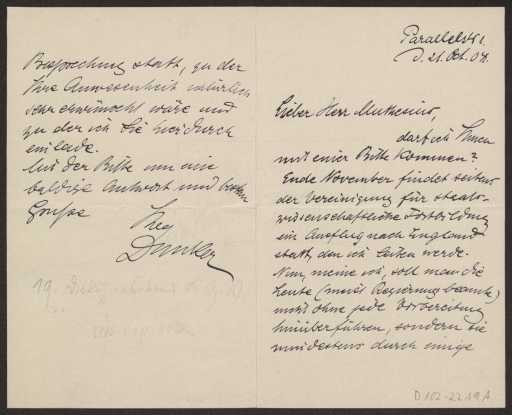 Parallelstr.
d. 21. Oct. 04.
Lieber Herr Muthesius,
darf ich Ihnen
mit einer Bitte kommen?
Ende November findet seitens
der Vereinigung für staats-
wissenschaftliche Fortbildung
ein Ausflug nach England
statt, den ich leiten werde.
Nun, meine ich, soll man die
Leute (meist Regierungsbeamte)
nicht ohne jede Vorbereitung
hinüberführen, sondern sie
mindestens durch einige
Besprechung statt, zu der
Ihre Anwesenheit natürlich
sehr erwünscht wäre und
zu der ich Sie hierdurch
einlade.
Mit der Bitte um eine
baldige Antwort und besten
Grusse
Ihr
Dunker
19.
D 102-2219 A